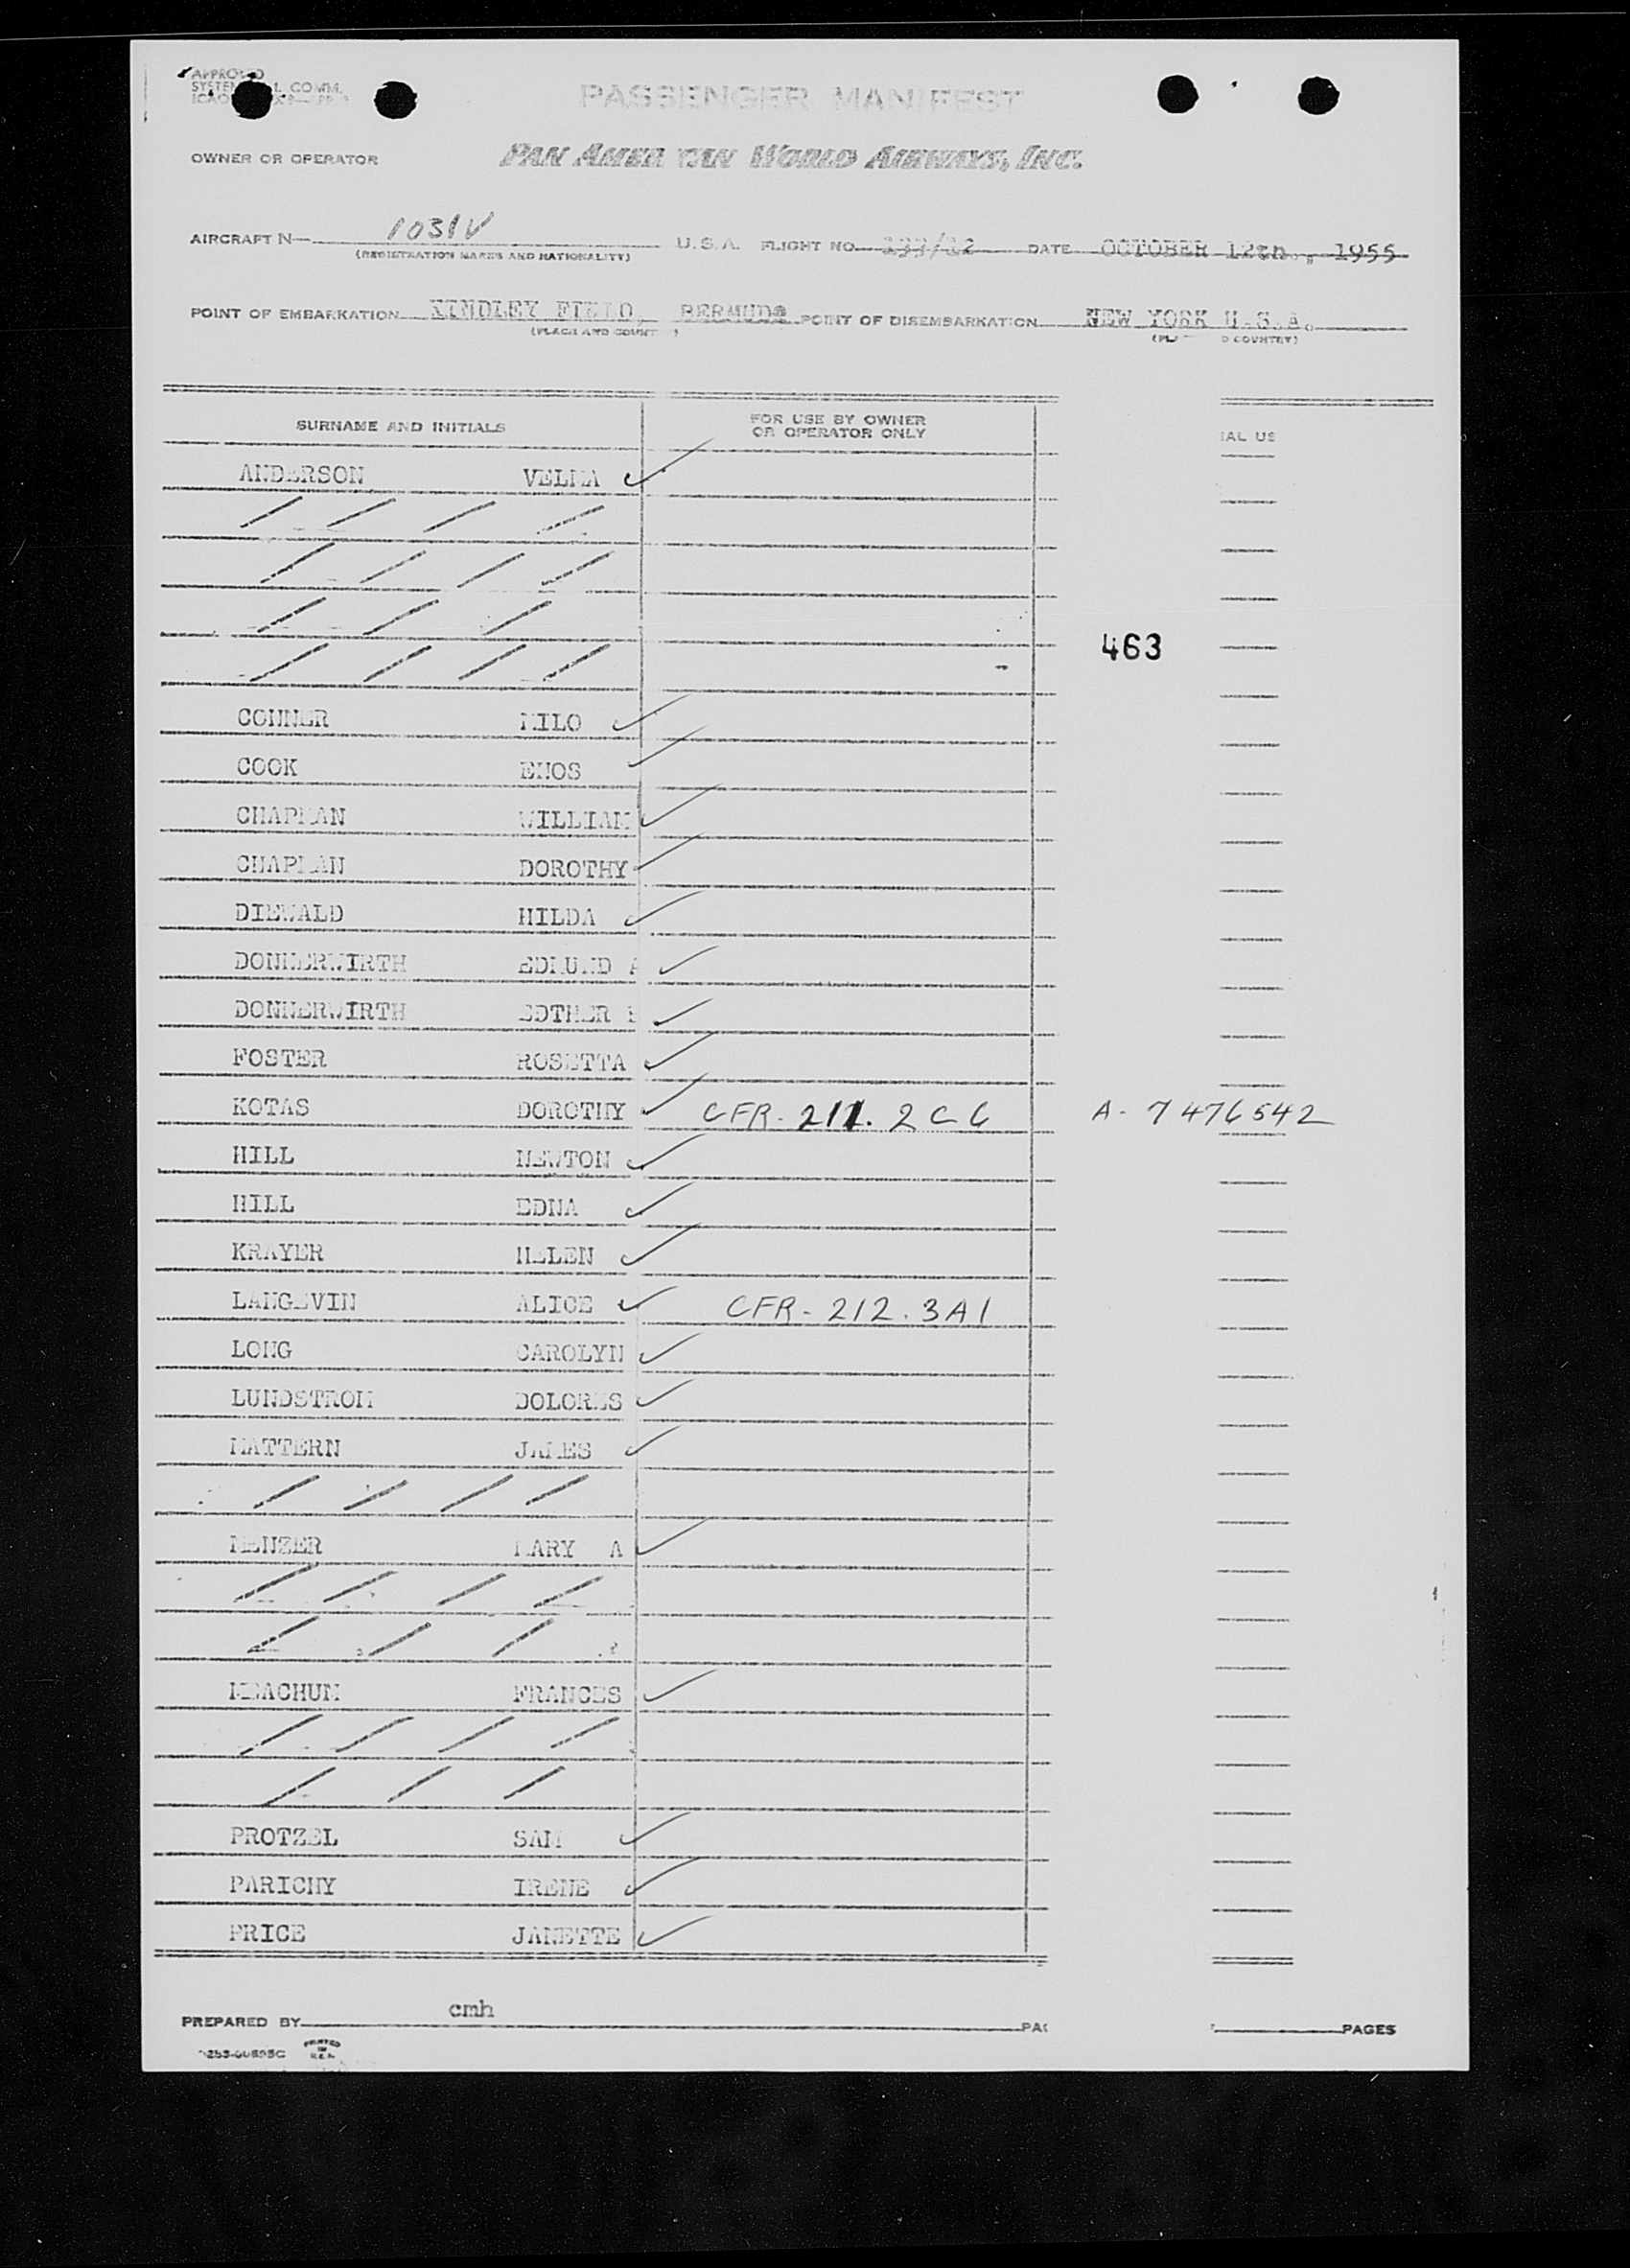 APPROVED
PASSENGER MANIFEST
OWNER OR OPERATOR PAN AMERICAN WORLD AIRWAYS, INC.
AIRCRAFT N— 1031V U.S.A. FLIGHT NO. DATE OCTOBER 12th., 1955
(REGISTRATION MARKS AND NATIONALITY)
POINT OF EMBARKATION KINDLEY FIELD, BERMUDA POINT OF DISEMBARKATION NEW YORK U.S.A.
(PLACE AND COUNT ) D COUNTRY)
SURNAME AND INITIALS FOR USE BY OWNER OR OPERATOR ONLY IAL US
ANDERSON VELMA ✓
/ / / /
/ / / /
/ / /
/ / / / 463
CONNER MILO ✓
COOK ENOS ✓
CHAPMAN WILLIAM ✓
CHAPMAN DOROTHY ✓
DIEWALD HILDA ✓
DONNERWIRTH EDMUND A ✓
DONNERWIRTH EDTHER ✓
FOSTER ROSETTA ✓
KOTAS DOROTHY ✓ CFR-211.2C6 A-7476542
HILL NEWTON ✓
HILL EDNA ✓
KRAYER HELEN ✓
LANGEVIN ALICE ✓ CFR-212.3A1
LONG CAROLYN ✓
LUNDSTROM DOLORES ✓
MATTERN JAMES ✓
/ / / /
MENZER MARY A ✓
/ / / /
/ / /
MEACHUM FRANCES ✓
/ / / /
/ / /
PROTZEL SAM ✓
PARICHY IRENE ✓
PRICE JANETTE ✓
PREPARED BY cmh PA PAGES
PRINTED IN U.S.A.